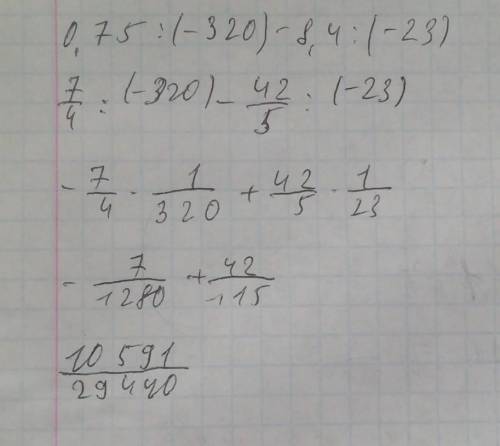 0,75 : (-320) - 8,4 : (-23)
7/4 : (-320) - 42/5 : (-23)
- 7/4 · 1/320 + 42/5 · 1/23
- 7/1280 + 42/115
10591/29440